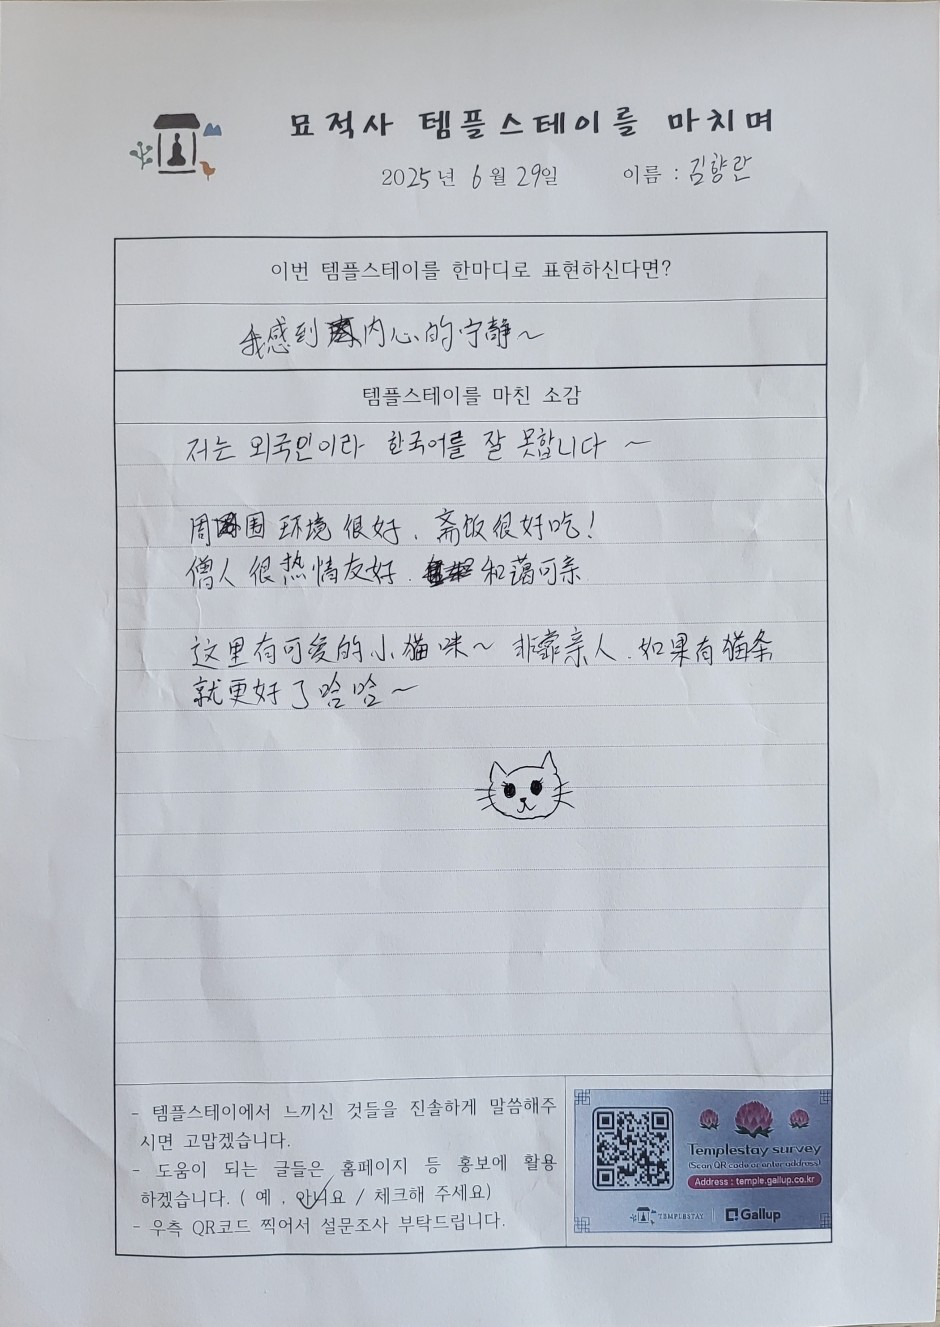 묘적사 템플스테이를 마치며
2025년 6월 29일 이름 : 김향란
이번 템플스테이를 한마디로 표현하신다면?
我感到内心的宁静~
템플스테이를 마친 소감
저는 외국인이라 한국어를 잘 못합니다 ~
周围环境很好, 斋饭很好吃!
僧人很热情友好. 和蔼可亲
这里有可爱的小猫咪~ 非常亲人. 如果有猫条
就更好了哈哈~
- 템플스테이에서 느끼신 것들을 진솔하게 말씀해주
시면 고맙겠습니다.
- 도움이 되는 글들은 홈페이지 등 홍보에 활용
하겠습니다. ( 예 , 아니요 / 체크해 주세요)
- 우측 QR코드 찍어서 설문조사 부탁드립니다.
Templestay survey
(Scan QR code or enter address)
Address : temple.gallup.co.kr
TEMPLESTAY | Gallup